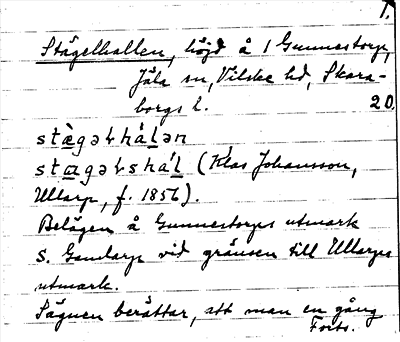 1.
Stägelhallen, höjd å 1 Gunnestorp,
Jäla sn, Vilske hd, Skara-
borgs l. 20.
stä̀gəƚhálən
stagəƚshál (Klas Johansson,
Ullarp, f. 1856).
Belägen å Gunnestorps utmark
S. Gamlarp vid gränsen till Ullarps
utmark.
Sägnen berättar, att man en gång
Forts.